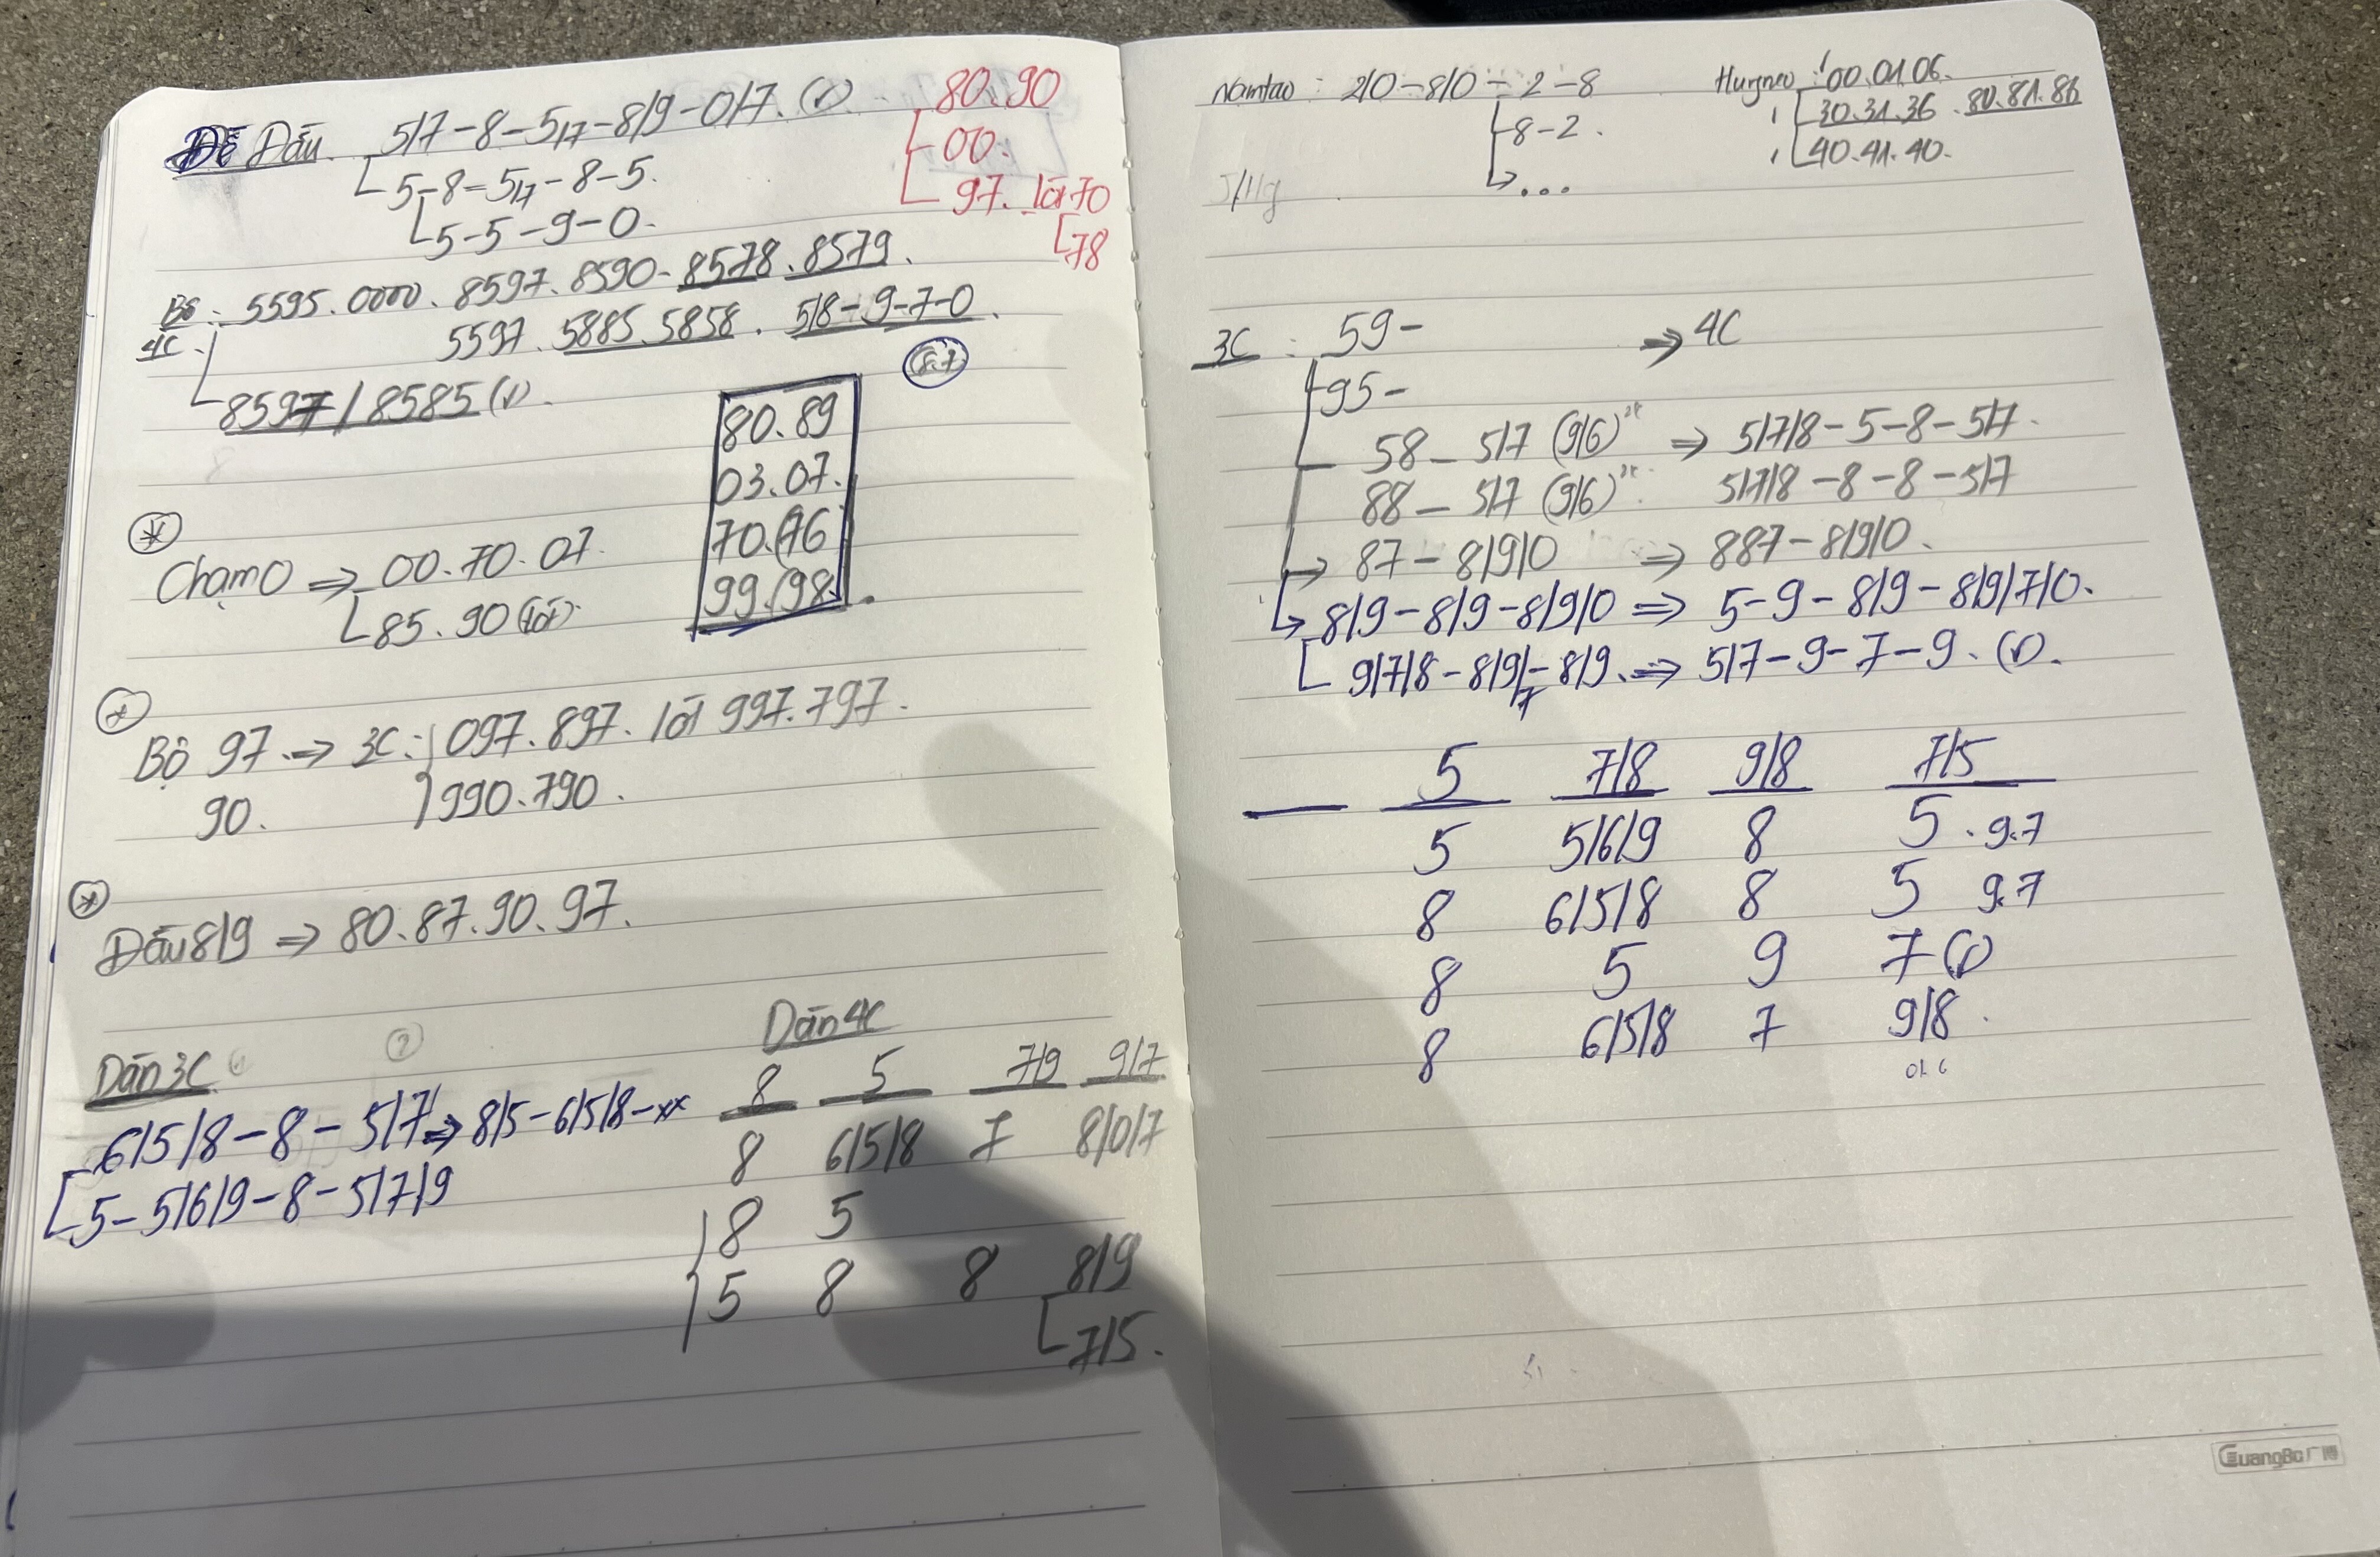 Đề Dấu. 5/7-8-5/7-8/9-0/7. (v)
5-8-5/7-8-5.
5-5-9-0.
80.90
00.
97. lót 70
78
Bộ : 5595.0000.8597.8590-8578.8579.
4C : 5597.5885.5858. 5/8-9-7-0.
8597/8585 (v).
(8.7)
80.89
03.07.
70.(76
99.(98.
Chạm 0 ⇒ 00.70.07.
85.90 (lót).
Bộ 97 ⇒ 3C: 097.897. lót 997.797.
90. 990.790.
Dấu 8/9 ⇒ 80.87.90.97.
Dàn 3C
6/5/8-8-5/7 ⇒ 8/5-6/5/8-xx
5-5/6/9-8-5/7/9
Dàn 4C
8 5 7/9 9/7
8 6/5/8 7 8/0/7
8 5
5 8 8 8/9
7/5.
Namtao : 2/0-8/0-2-8
8-2.
...
00.01.06.
30.31.36.80.81.86
40.41.40.
3C : 59- ⇒ 4C
95-
58-5/7 (9/6) ⇒ 5/7/8-5-8-5/7.
88-5/7 (9/6) 5/7/8-8-8-5/7
87-8/9/0 ⇒ 887-8/9/0.
8/9-8/9-8/9/0 ⇒ 5-9-8/9-8/9/7/0.
9/7/8-8/9/7-8/9. ⇒ 5/7-9-7-9. (v).
5 7/8 9/8 7/5
5 5/6/9 8 5 . 9.7
8 6/5/8 8 5 9.7
8 5 9 7 (v)
8 6/5/8 7 9/8.
GuangBo广博